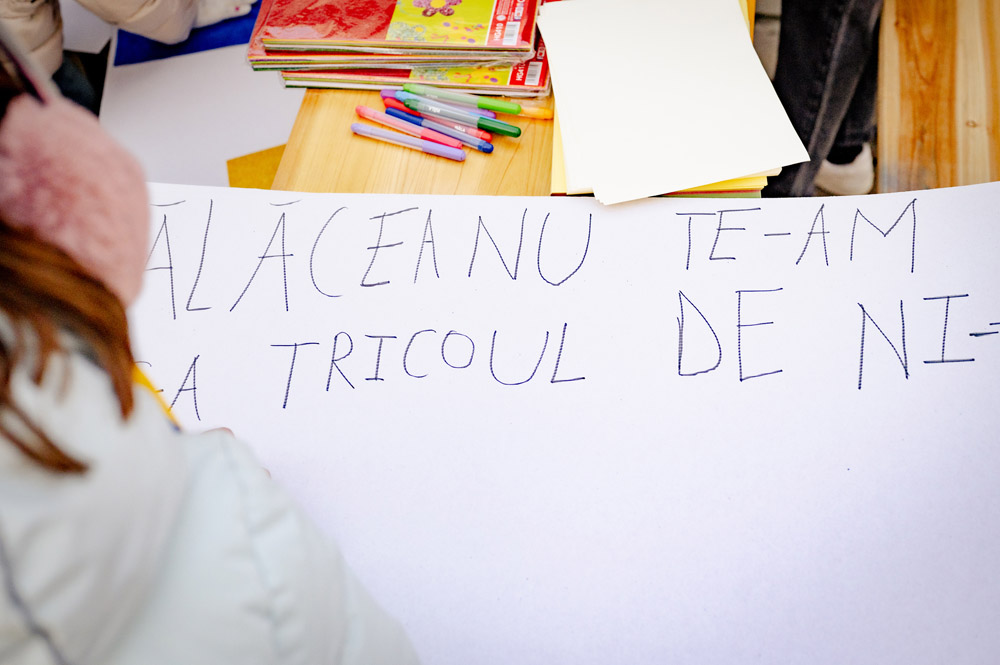 ĂLĂCEANU TE-AM
TRICOUL DE NI-